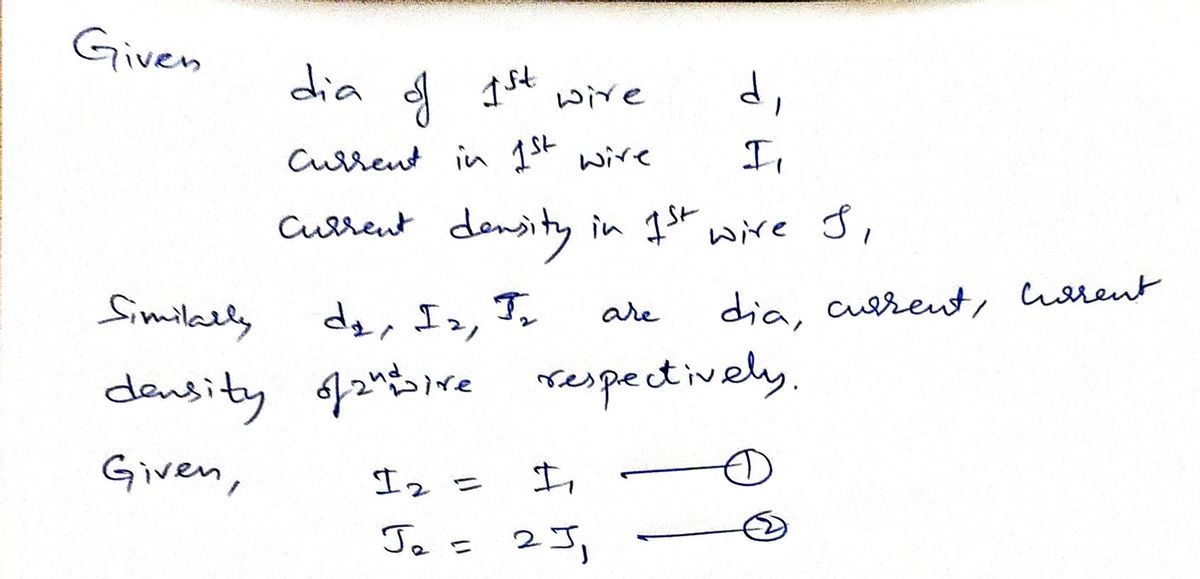 Given
dia of 1st wire d1
current in 1st wire I1
current density in 1st wire J1
Similarly d2, I2, J2 are dia, current, current
density of 2nd wire respectively.
Given, I2 = I1 —— ①
J2 = 2J1 —— ②